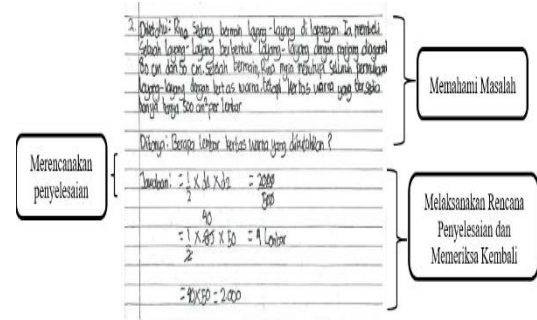 2. Diketahui: Rina sedang bermain layang-layang di lapangan. Ia membeli
sebuah layang-layang berbentuk layang-layang dengan panjang diagonal
80 cm dan 50 cm. setelah bermain, Rina ingin menutupi seluruh permukaan
layang-layang dengan kertas warna. tetapi kertas warna yang tersedia
hanya 500 cm² per lembar
Ditanya: Berapa lembar kertas warna yang dibutuhkan?
Jawaban: = 1/2 x d1 x d2 = 2000/500
40
= 1/2 x 80 x 50 = 4 Lembar
= 40x50 = 2000
Memahami Masalah
Merencanakan
penyelesaian
Melaksanakan Rencana
Penyelesaian dan
Memeriksa Kembali